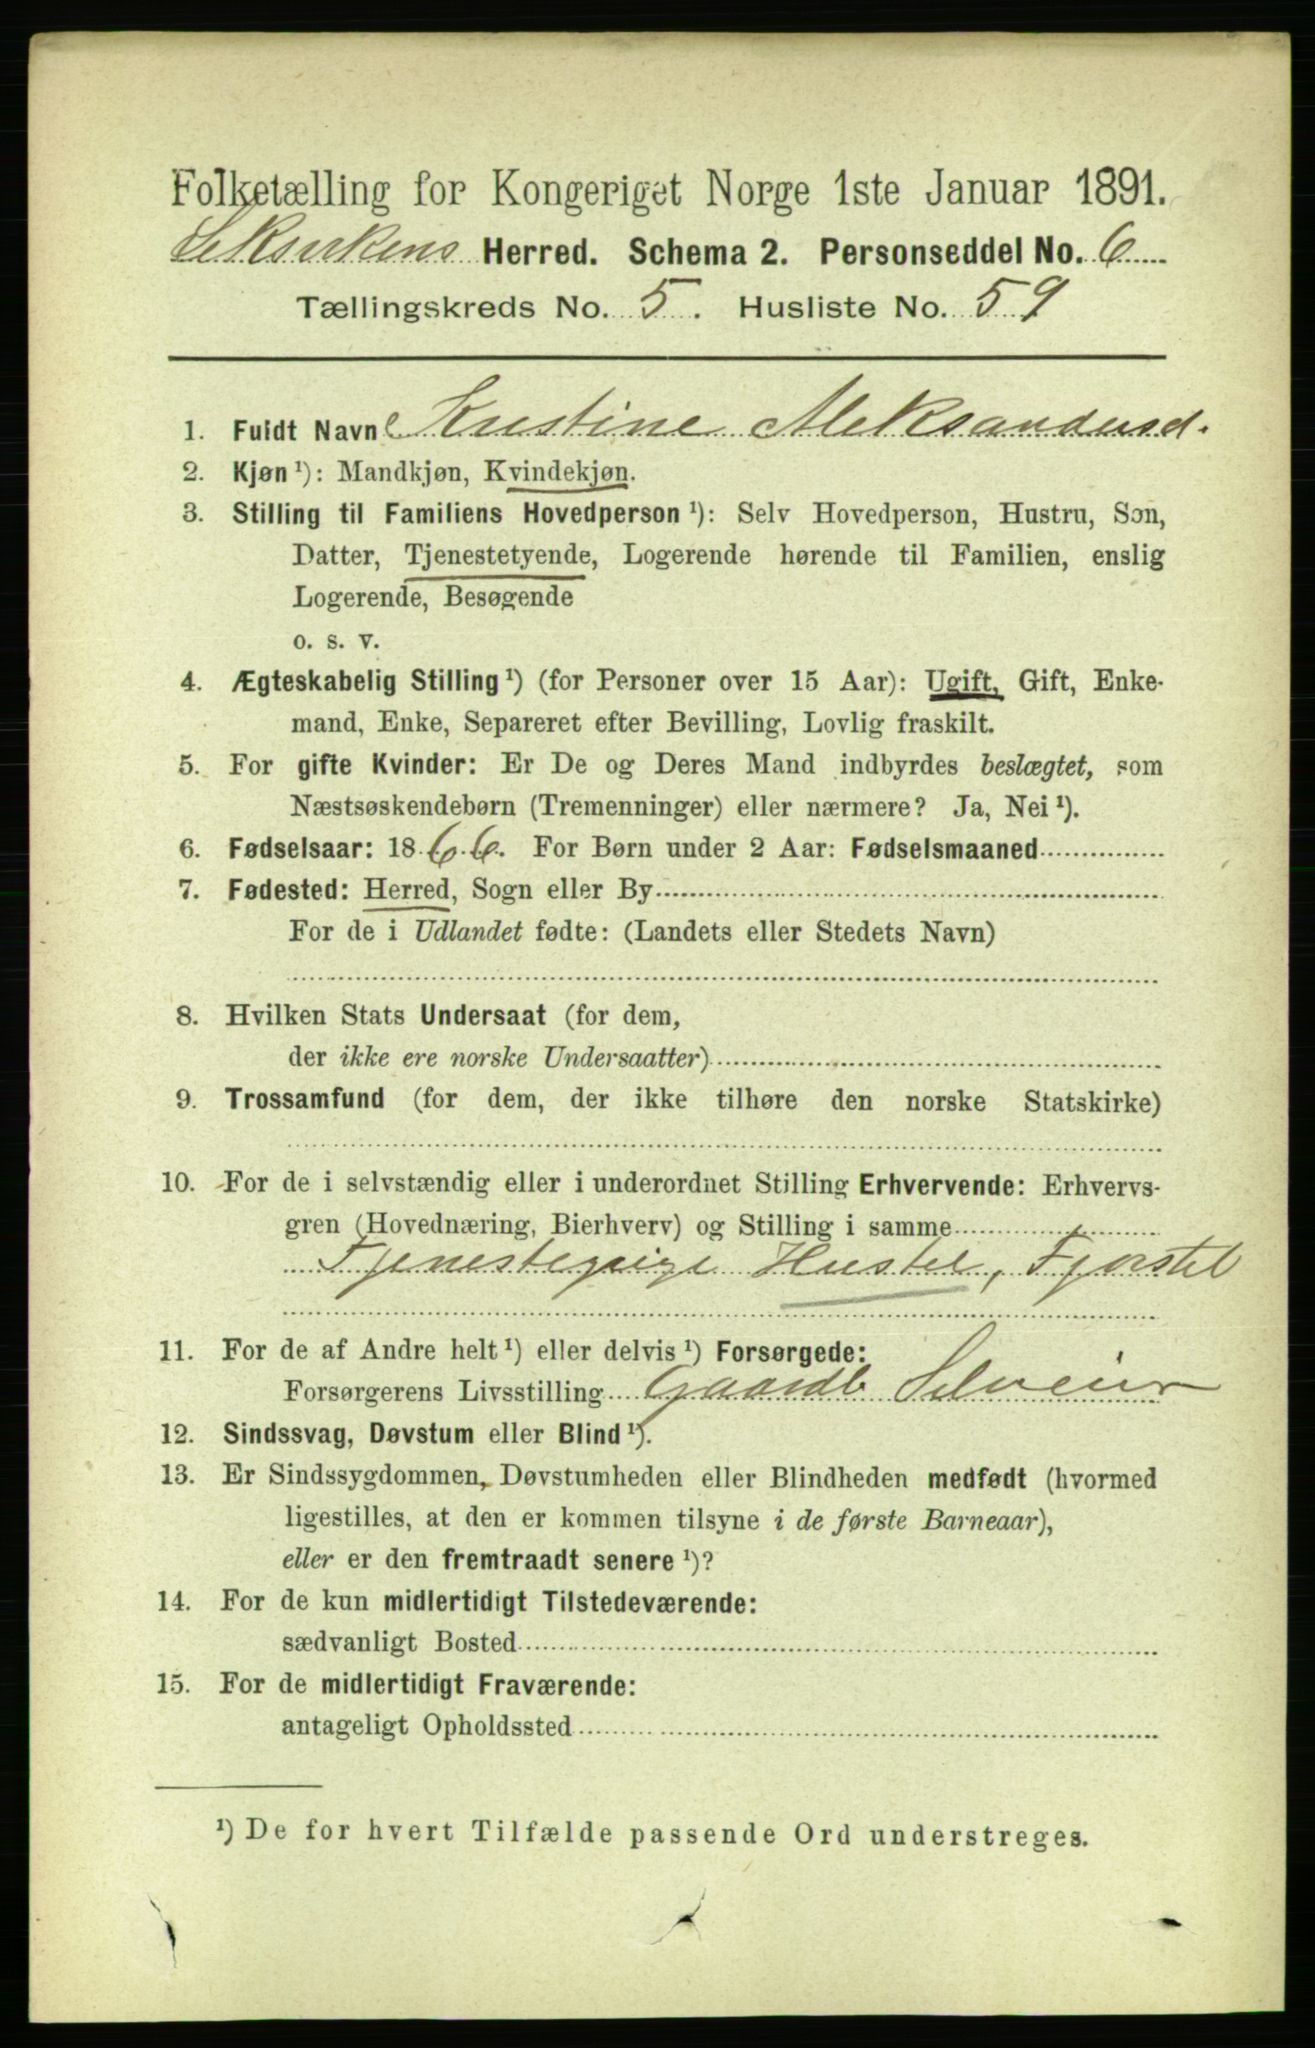 Folketælling for Kongeriget Norge 1ste Januar 1891.
Leksvikens Herred. Schema 2. Personseddel No. 6
Tællingskreds No. 5. Husliste No. 59
1. Fuldt Navn Kristine Aleksandersd.
2. Kjøn ¹): Mandkjøn, Kvindekjøn.
3. Stilling til Familiens Hovedperson ¹): Selv Hovedperson, Hustru, Søn,
Datter, Tjenestetyende, Logerende hørende til Familien, enslig
Logerende, Besøgende
o. s. v.
4. Ægteskabelig Stilling ¹) (for Personer over 15 Aar): Ugift, Gift, Enke-
mand, Enke, Separeret efter Bevilling, Lovlig fraskilt.
5. For gifte Kvinder: Er De og Deres Mand indbyrdes beslægtet, som
Næstsøskendebørn (Tremenninger) eller nærmere? Ja, Nei ¹).
6. Fødselsaar: 1866. For Børn under 2 Aar: Fødselsmaaned
7. Fødested: Herred, Sogn eller By
For de i Udlandet fødte: (Landets eller Stedets Navn)
8. Hvilken Stats Undersaat (for dem,
der ikke ere norske Undersaatter)
9. Trossamfund (for dem, der ikke tilhøre den norske Statskirke)
10. For de i selvstændig eller i underordnet Stilling Erhvervende: Erhvervs-
gren (Hovednæring, Bierhverv) og Stilling i samme
Tjenestepige Hustel, Fjøstel
11. For de af Andre helt ¹) eller delvis ¹) Forsørgede:
Forsørgerens Livsstilling Gaardb Selveier
12. Sindssvag, Døvstum eller Blind ¹).
13. Er Sindssygdommen, Døvstumheden eller Blindheden medfødt (hvormed
ligestilles, at den er kommen tilsyne i de første Barneaar),
eller er den fremtraadt senere ¹)?
14. For de kun midlertidigt Tilstedeværende:
sædvanligt Bosted
15. For de midlertidigt Fraværende:
antageligt Opholdssted
¹) De for hvert Tilfælde passende Ord understreges.